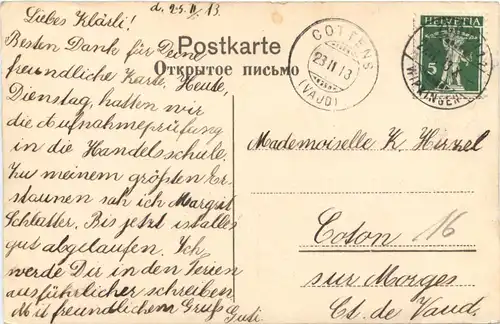 d. 25. II. 13.
Liebes Klärli!
Besten Dank für Deine
freundliche Karte. Heute,
Dienstag, hatten wir
die Aufnahmeprüfung
in die Handelsschule.
Zu meinem größten Er-
staunen sah ich Margrit
Schlatter. Bis jetzt ist alles
gut abgelaufen. Ich
werde Dir in den Ferien
ausführlicher schreiben
Mit freundlichem Gruß
Postkarte
Открытое письмо
COTTENS
II 13
(VAUD)
HELVETIA
5
Mademoiselle K. Hirzel
16
Coton
sur Morges
Ct. de Vaud.